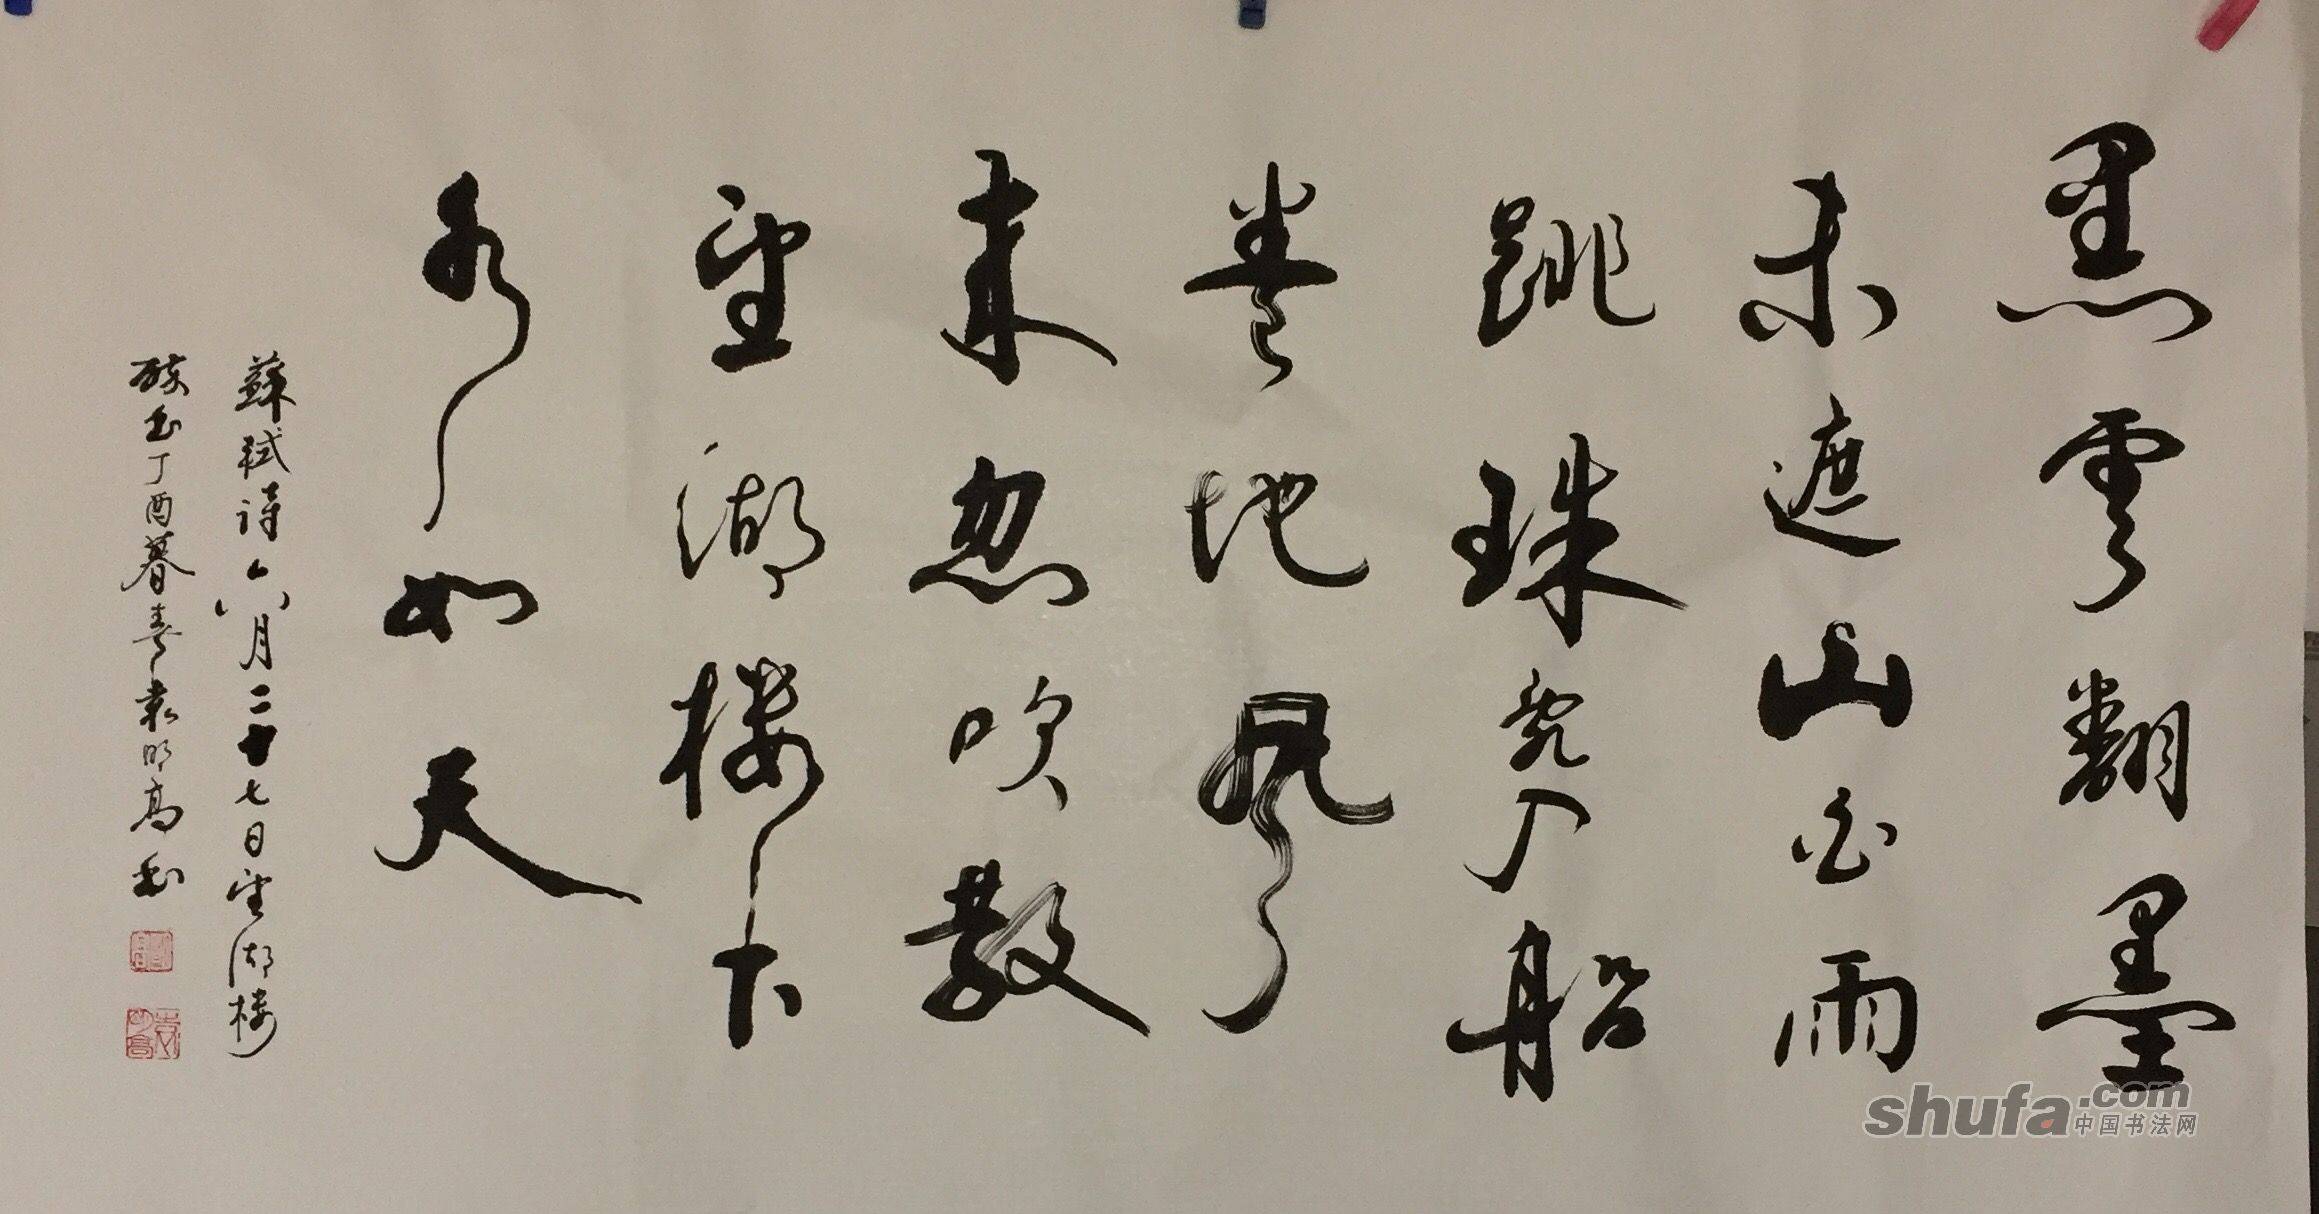 黑雲翻墨
未遮山白雨
跳珠乱入船
卷地風
来忽吹散
望湖楼下
水如天
蘇軾詩六月二十七日望湖楼
醉书丁酉暮春袁明高书
袁明高
shufa.com
中国书法网